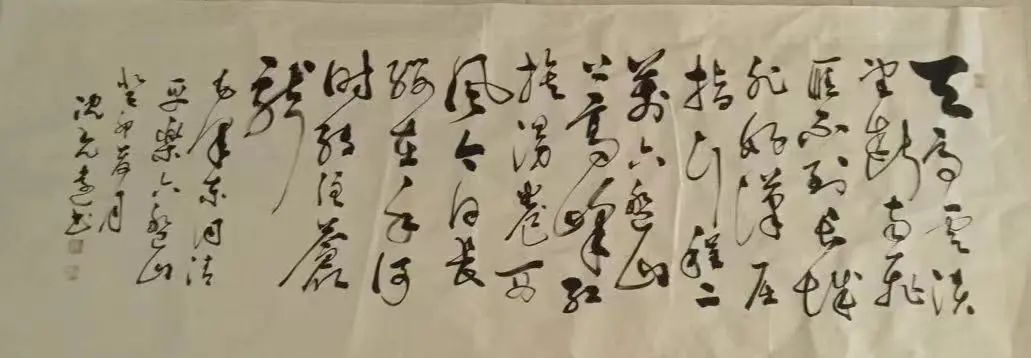 天高雲淡
望斷南飛
雁不到長城
非好漢屈
指行程二
萬六盤山
上高峰紅
旗漫卷西
風今日長
缨在手何
时缚住蒼
龍
毛澤东词清
平樂六盤山
癸卯月
沈书